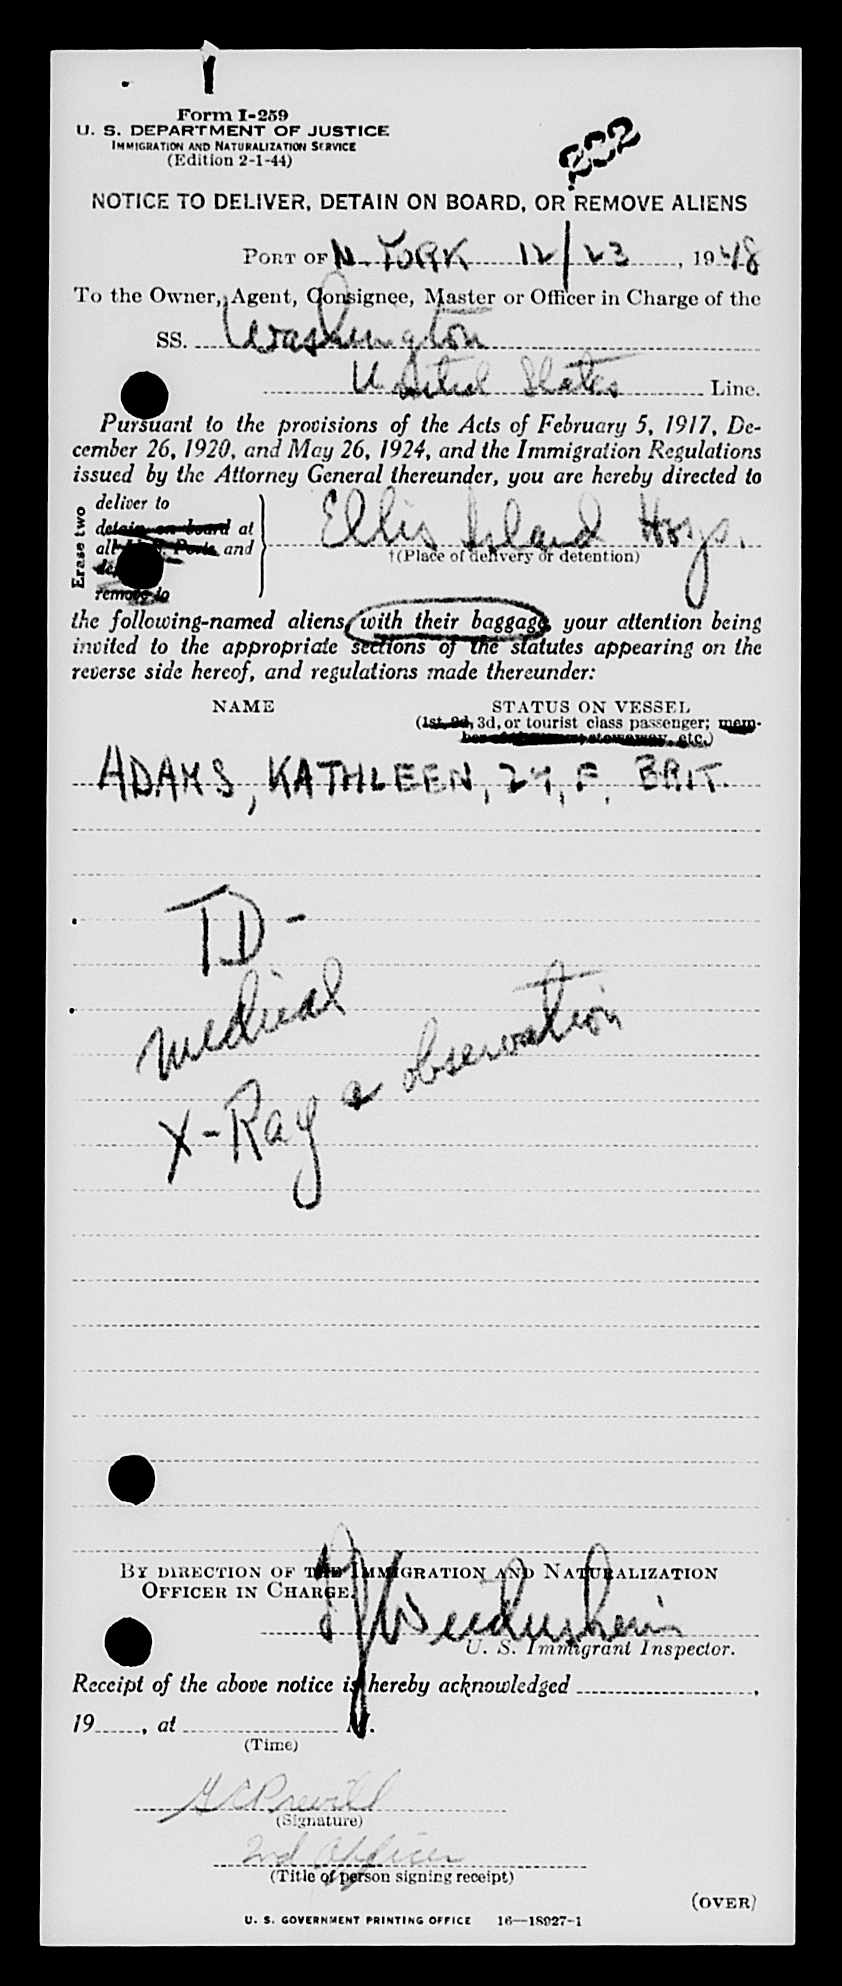 Form I-259
U. S. DEPARTMENT OF JUSTICE
IMMIGRATION AND NATURALIZATION SERVICE
(Edition 2-1-44)
232
NOTICE TO DELIVER, DETAIN ON BOARD, OR REMOVE ALIENS
PORT OF N. YORK 12/23, 1948
To the Owner, Agent, Consignee, Master or Officer in Charge of the
SS. Washington
United States Line.
Pursuant to the provisions of the Acts of February 5, 1917, De-
cember 26, 1920, and May 26, 1924, and the Immigration Regulations
issued by the Attorney General thereunder, you are hereby directed to
Erase two
deliver to
detain on board at
all U. S. Ports and
remove to
Ellis Island
†(Place of delivery or detention)
the following-named aliens, with their baggage, your attention being
invited to the appropriate sections of the statutes appearing on the
reverse side hereof, and regulations made thereunder:
NAME STATUS ON VESSEL
(1st, 2d, 3d, or tourist class passenger; mem-
stowaway, etc.)
ADAMS, KATHLEEN, 24, F. BRIT.
TD-
medical
X-Ray & observation
BY DIRECTION OF THE IMMIGRATION AND NATURALIZATION
OFFICER IN CHARGE.
U. S. Immigrant Inspector.
Receipt of the above notice is hereby acknowledged ,
19 , at M.
(Time)
(Signature)
2nd Officer
(Title of person signing receipt)
(OVER)
U. S. GOVERNMENT PRINTING OFFICE 16—18927-1